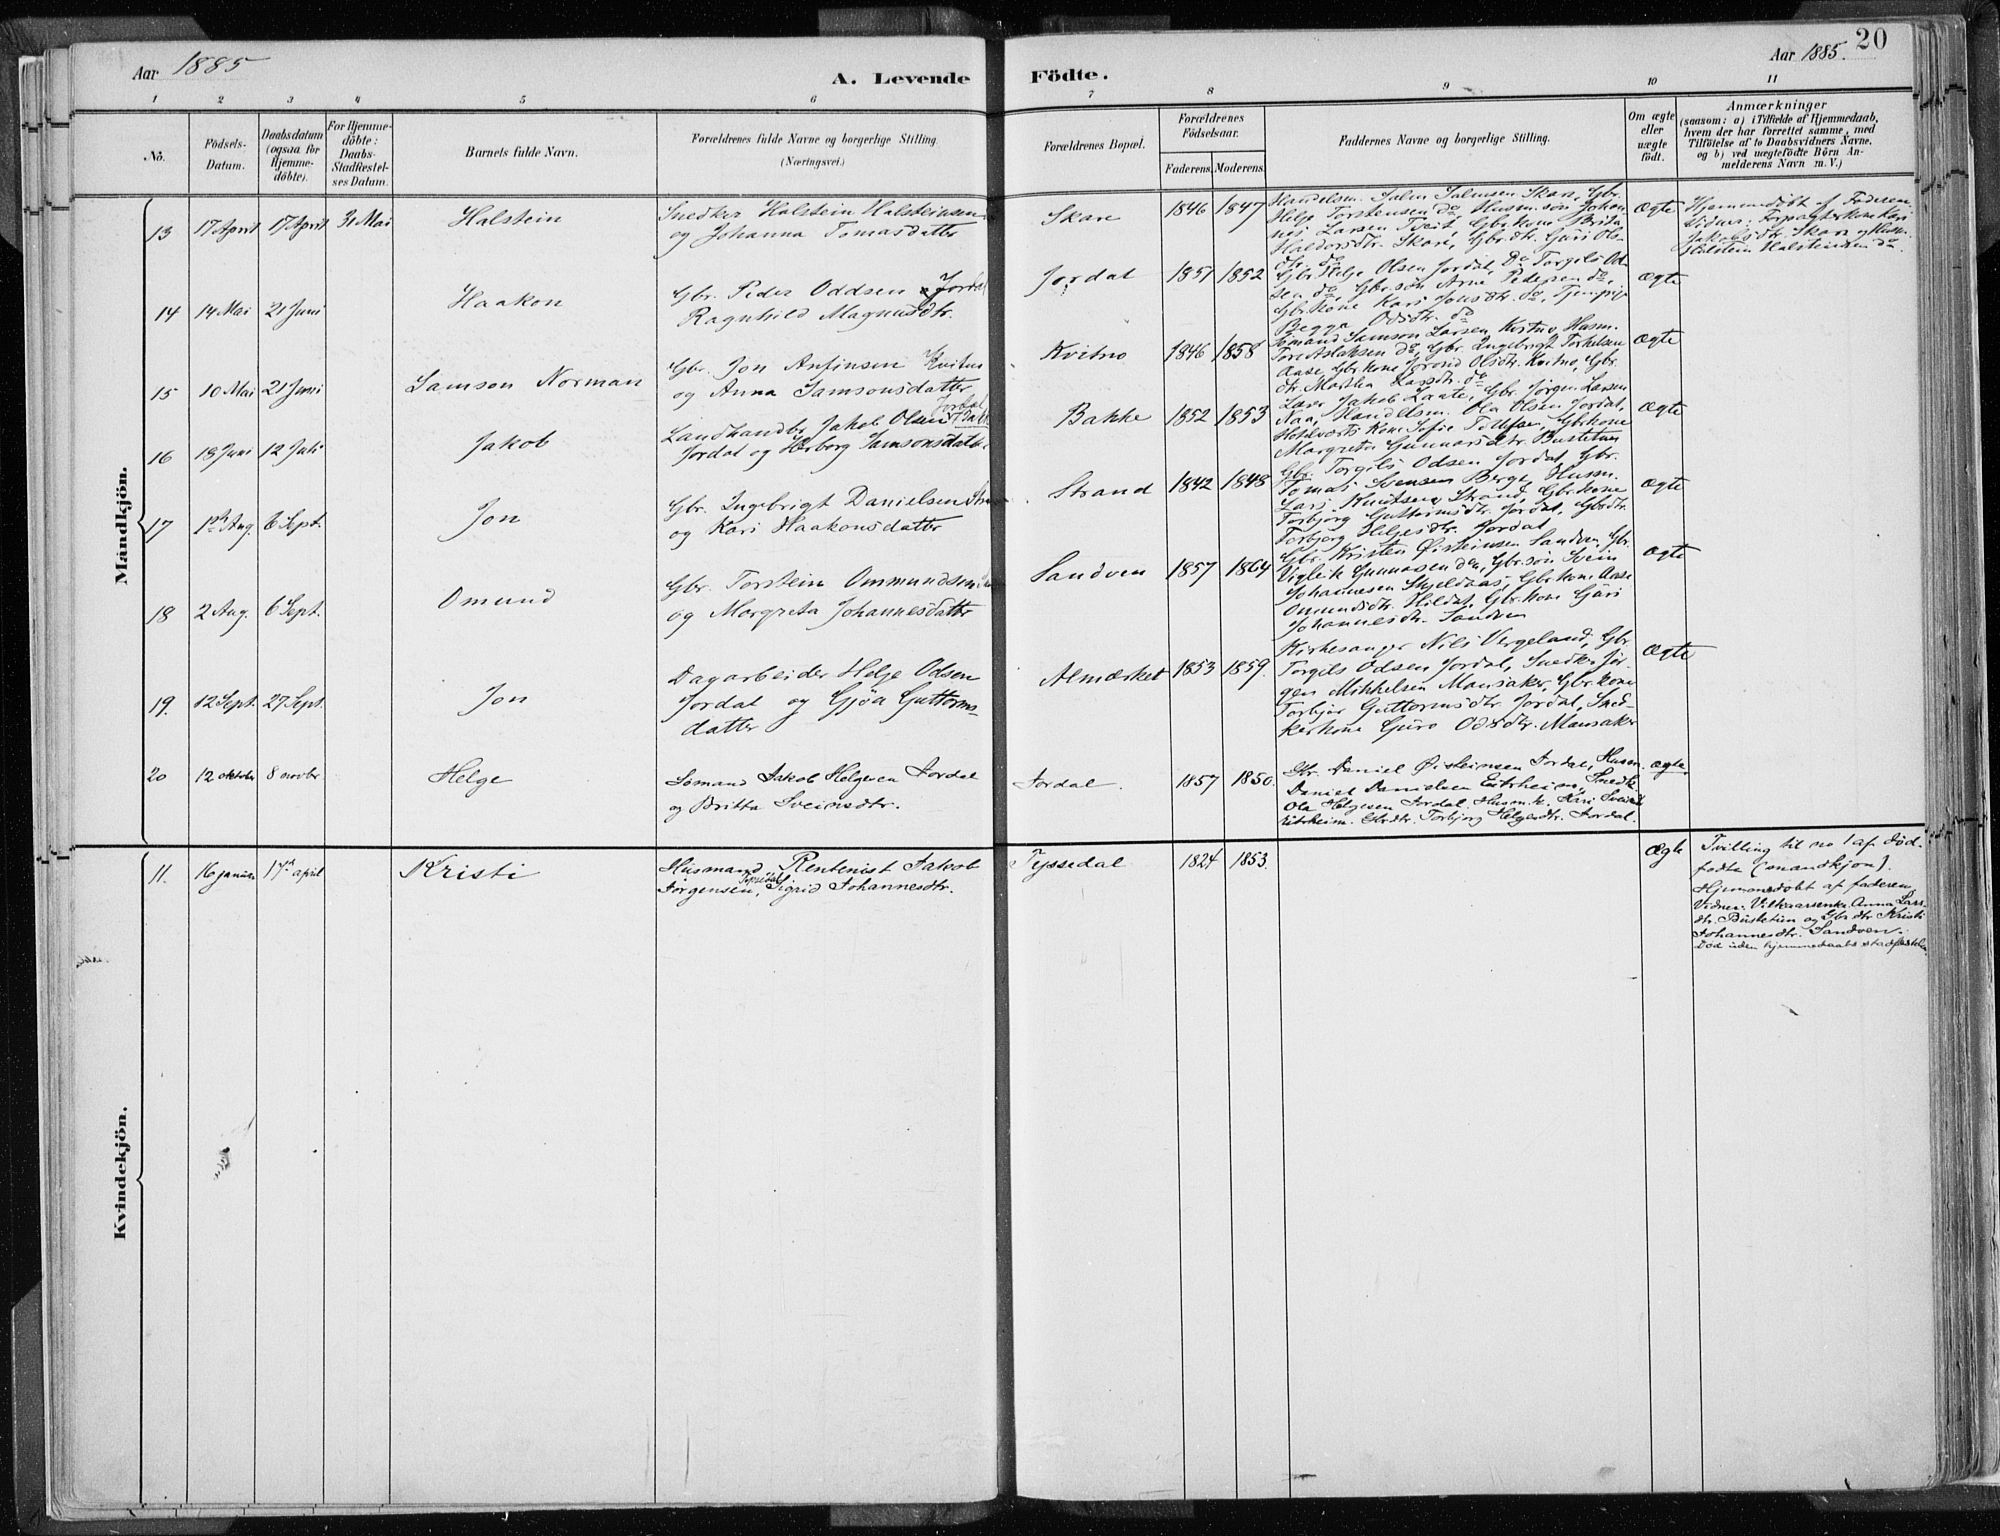 Aar 1885
A. Levende
Födte.
Aar 1885.
20
1 2 3 4 5 6 7 8 9 10 11
No.
Födsels-
Datum.
Daabsdatum
(ogsaa for
Hjemme-
döbte).
For Hjemme-
döbte:
Daabs-
Stadfæstel-
ses Datum.
Barnets fulde Navn.
Forældrenes fulde Navne og borgerlige Stilling.
(Næringsvei.)
Forældrenes Bopæl.
Forældrenes
Födselsaar.
Faderens. Moderens.
Faddernes Navne og borgerlige Stilling.
Om ægte
eller
uægte
födt.
Anmærkninger
(saasom: a) i Tilfælde af Hjemmedaab,
hvem der har forrettet samme, med
Tilföielse af to Daabsvidners Navne,
og b) ved uægtefödte Börn An-
melderens Navn m. V.)
Mandkjön.
13 17 April 17 April 31 Mai Halstein
Snedker Halstein Halsteinsen
og Johanna Tomasdatter
Skare 1846 1847
Handelsm. Salm. Salmsen Skare, Gbr.
Helje Torstensen do, Husm.søn Johan-
nes Larsen Tveit, Gbr.kone Brita
Haldorsdtr. Skare, Gbr.dtr. Guri Ols-
dtr. do
ægte
Hjemmedöbt af Faderen.
Vidner: Forpagterkone Kari
Jakobsdtr. Skare og Husm.
Halstein Halsteinsen do.
14 14 Mai 21 Juni Haakon
Gbr. Peder Oddsen Jordal
Ragnhild Magnusdtr.
Jordal 1851 1852
Gbr. Helje Olsen Jordal, Do Torgils Od-
sen do, Gbr.søn Arne Pedersen do,
Gbr.kone Kari Jonsdtr. do, Tjenpige
Begga Odsdtr. do
ægte
15 10 Mai 21 Juni Samson Norman
Gbr. Jon Anfinsen Kvitno
og Anna Samsonsdatter
Kvitno 1846 1858
Sömand Samson Larsen Kvitno, Husm.
Tore Aslaksen do, Gbr. Ingebrigt Torkelsen
Aase, Gbr.kone Jorond Olsdtr. Kvitno, Gbr.
dtr. Martha Larsdtr. do
ægte
16 18 Juni 12 Juli Jakob
Landhandler Jakob Olsen
Jordal og Herborg Samsonsdatter
Bakke 1852 1853
Lærer Jakob Laate, Gbr. Jørgen Larsen
Naa, Handelsm. Ola Olsen Jordal,
Hotelværts Kone Sofie Tollefsen, Gbr.kone
Margreta Gunnarsdtr. Bustetun
ægte
17 Aug. 6 Sept. Jon
Gbr. Ingebrigt Danielsen
og Kari Haakonsdatter
Strand 1842 1848
Gbr. Torgils Odsen Jordal, Gbr.
Tomas Svensen Berge, Husm.
Lars Knutsen Strand, Gbr.kone
Torbjørg Guttormsdtr. Jordal, Gbr.dtr.
Torbjørg Heljesdtr. Jordal
ægte
18 2 Aug. 6 Sept. Omund
Gbr. Torstein Ommundsen
og Margreta Johannesdatter
Sandven 1857 1864
Gbr. Kristen Øisteinsen Sandven, Gbr.
Vigleik Gunnarsen do, Gbr.søn Svein
Johannesen Skjeldaas, Gbr.kone Aase
Omundsdtr. Hildal, Gbr.kone Guri
Johannesdtr. Sandven
ægte
19. 12 Sept. 27 Sept. Jon
Dagarbeider Helje Odsen
Jordal og Gjøa Guttorms-
datter
Almærket 1853 1859.
Kirkesanger Nils Vergeland, Gbr.
Torgils Odsen Jordal, Snedk. Jør-
gen Mikkelsen Mansaker, Gbr.kone
Torbjør Guttormsdtr Jordal, Sned-
kerkone Guro Odsdtr. Mansaker
ægte
20 12 oktober 8 novbr. Helge
Sømand Jakob Helgesen Jordal
og Britta Sveinsdtr.
Jordal. 1857 1850.
Gbr. Daniel Øisteinsen Jordal, Husm.
Daniel Danielsen Eitrheim, Snedk.
Ola Helgesen Jordal. Husm.k. Kari Sveinsdtr
Eitrheim. Gbrdtr. Torbjørg Helgesdtr. Jordal.
ægte
Kvindekjön.
11. 16 januar 17 april Kristi
Husmand Rentenist Jakob
Jørgensen, Tyssedal Sigrid Johannesdtr.
Tyssedal 1824 1853.
Ægte
Tvilling til no 1 af død-
fødte (mandkjøn).
Hjemmedøbt af faderen
Vidner: Vilkaarsenke Anna Lars-
dtr. Bustetun og Gbrdtr Kristi
Johannesdtr. Sandven.
Død uden hjemmedaabs stadfæstelse